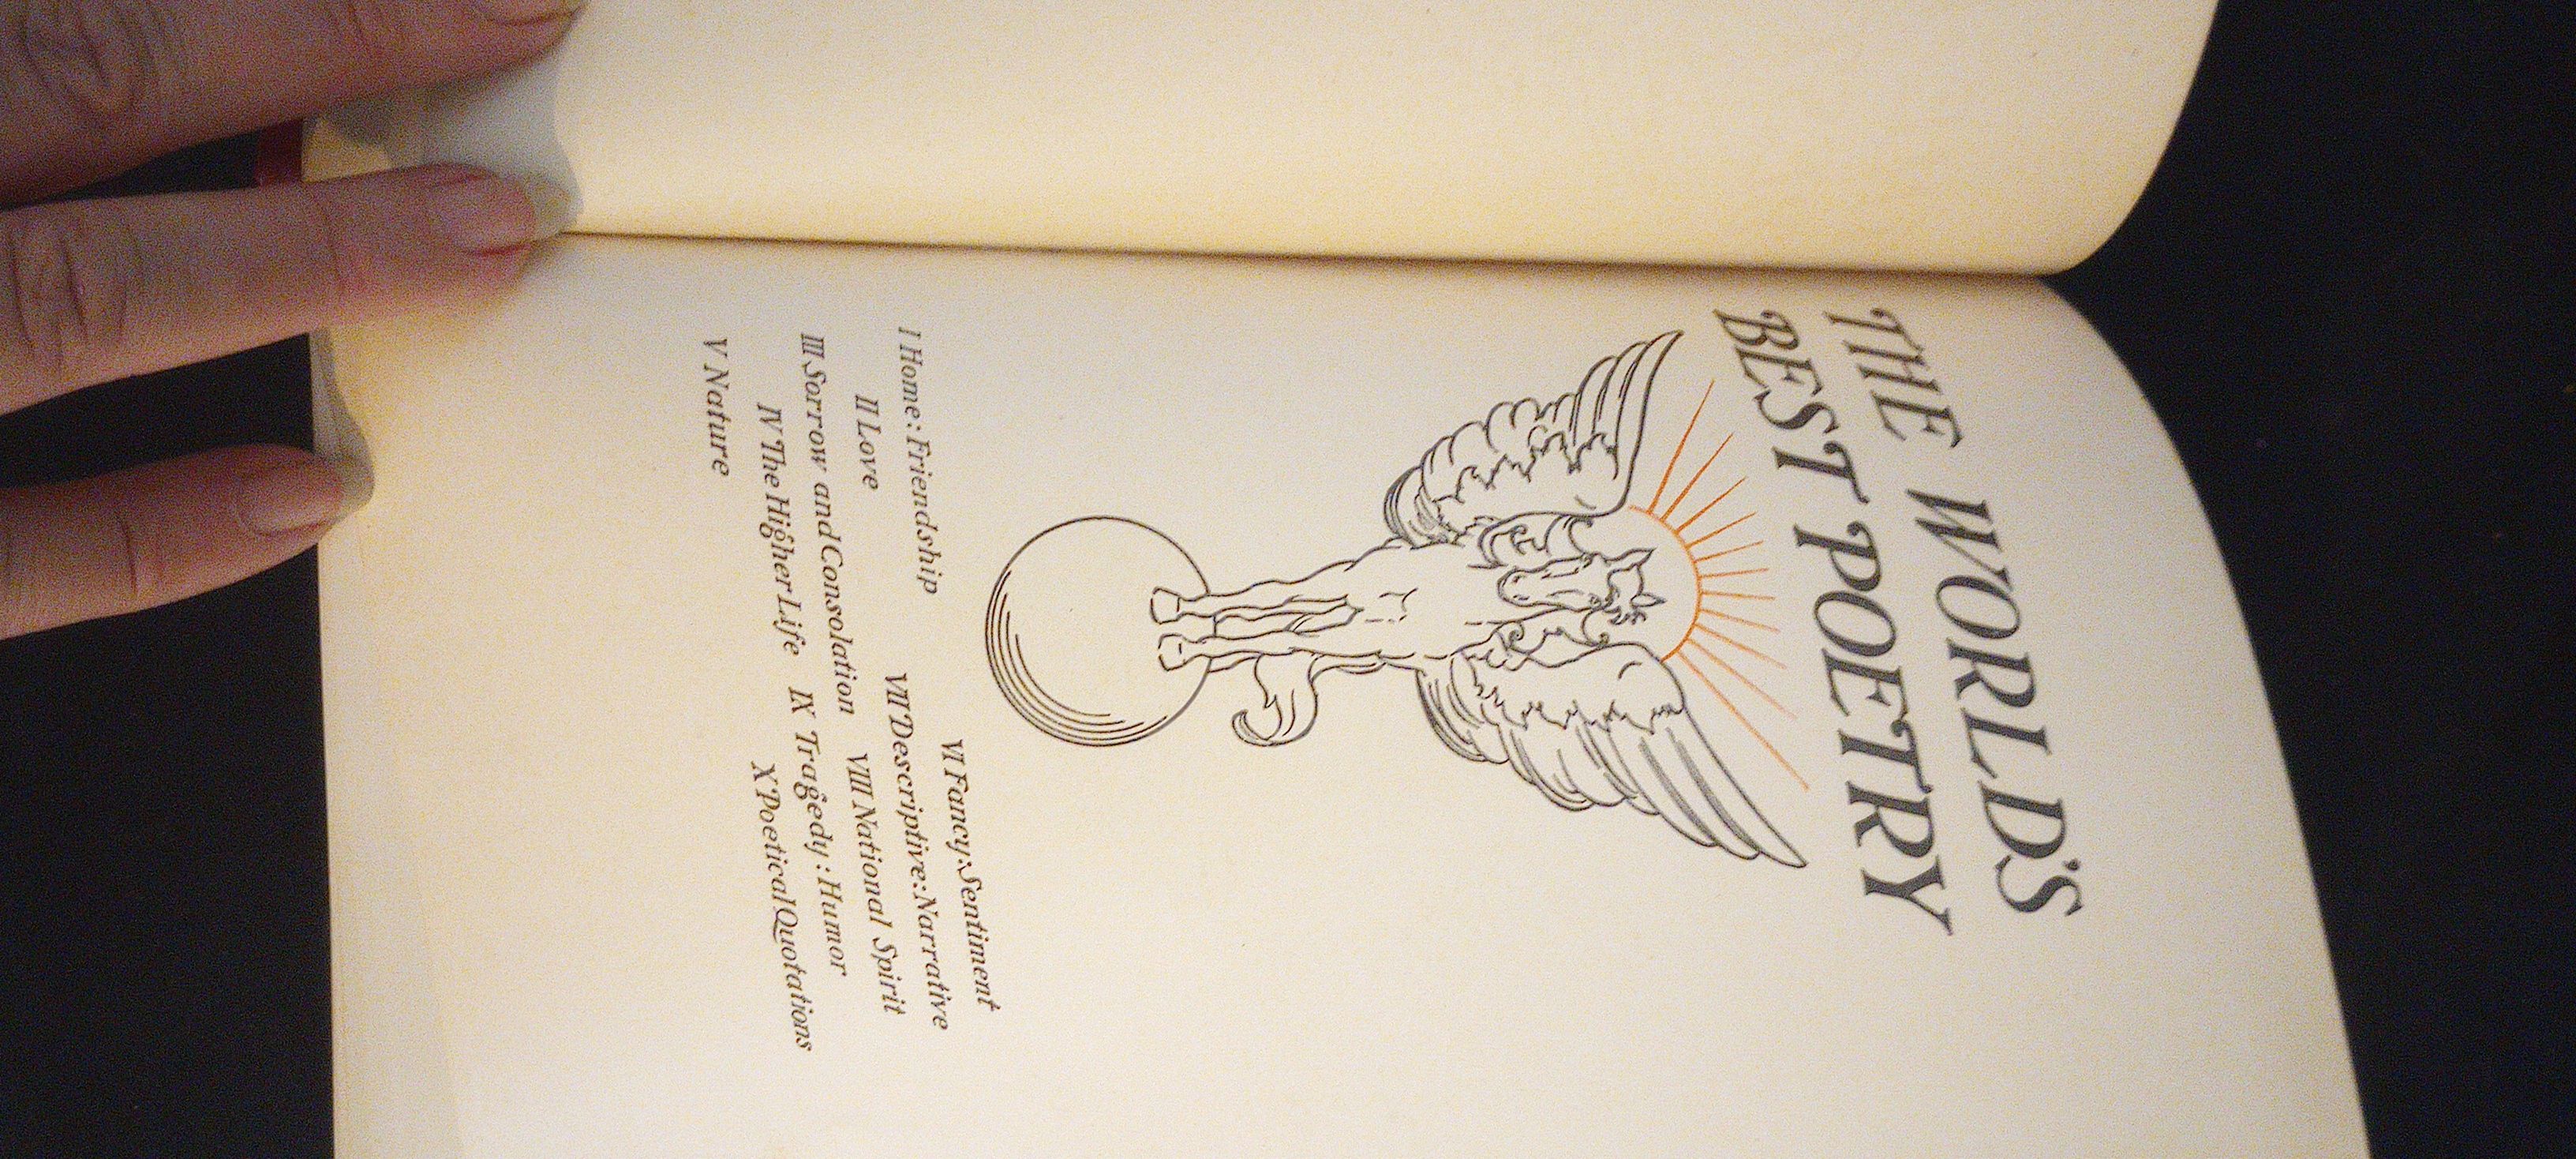 THE WORLD'S
BEST POETRY
I Home: Friendship
II Love
III Sorrow and Consolation
IV The Higher Life
V Nature
VI Fancy: Sentiment
VII Descriptive: Narrative
VIII National Spirit
IX Tragedy: Humor
X Poetical Quotations